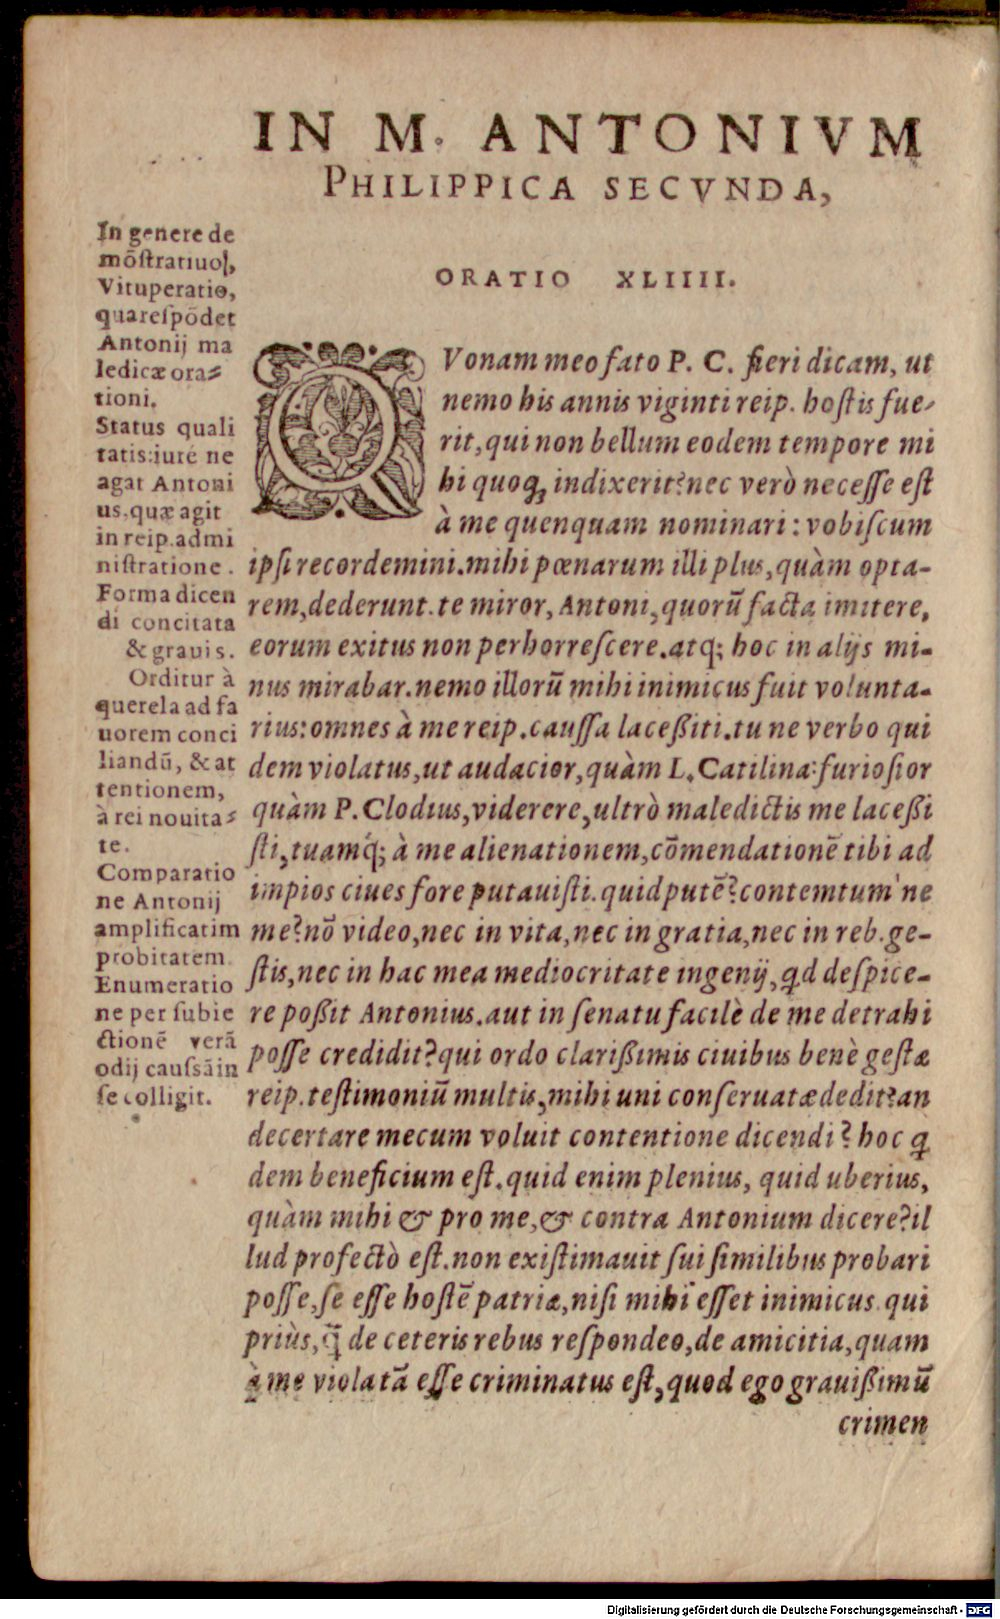 IN M. ANTONIVM
PHILIPPICA SECVNDA,
ORATIO XLIIII.
In genere de
mõſtratiuo,
Vituperatio,
quareſpõdet
Antonij ma
ledicæ ora⸗
tioni.
Status quali
tatis: iuré ne
agat Antoni
us, quæ agit
in reip. admi
niſtratione.
Forma dicen
di concitata
& grauis.
Orditur à
querela ad fa
uorem conci
liandũ, & at
tentionem,
à rei nouita⸗
te.
Comparatio
ne Antonij
amplificatim
probitatem.
Enumeratio
ne per ſubie
ctionẽ verã
odij cauſsã in
ſe colligit.
QVonam meo fato P. C. fieri dicam, ut
nemo his annis viginti reip. hoſtis fue-
rit, qui non bellum eodem tempore mi
hi quoq; indixerit? nec verò neceſſe eſt
à me quenquam nominari: vobiſcum
ipſi recordemini. mihi pœnarum illi plus, quàm opta-
rem, dederunt. te miror, Antoni, quorũ facta imitere,
eorum exitus non perhorreſcere. atq; hoc in alijs mi-
nus mirabar. nemo illorũ mihi inimicus fuit volunta-
rius: omnes à me reip. cauſſa laceßiti. tu ne verbo qui
dem violatus, ut audacior, quàm L. Catilina: furioſior
quàm P. Clodius, viderere, ultrò maledictis me laceßi
ſti, tuamq́; à me alienationem, cõmendationẽ tibi ad
impios ciues fore putauiſti. quid putẽ? contemtum ne
me? nõ video, nec in vita, nec in gratia, nec in reb. ge-
ſtis, nec in hac mea mediocritate ingenij, qd deſpice-
re poßit Antonius. aut in ſenatu facilè de me detrahi
poſſe credidit? qui ordo clarißimis ciuibus benè geſtæ
reip. teſtimoniũ multis, mihi uni conſeruatæ dedit? an
decertare mecum voluit contentione dicendi? hoc q
dem beneficium eſt. quid enim plenius, quid uberius,
quàm mihi & pro me, & contra Antonium dicere? il
lud profectò eſt. non exiſtimauit ſui ſimilibus probari
poſſe, ſe eſſe hoſtẽ patriæ, niſi mihi eſſet inimicus. qui
priùs, q̃ de ceteris rebus reſpondeo, de amicitia, quam
à me violatã eſſe criminatus eſt, quod ego grauißimũ
crimen
Digitalisierung gefördert durch die Deutsche Forschungsgemeinschaft - DFG